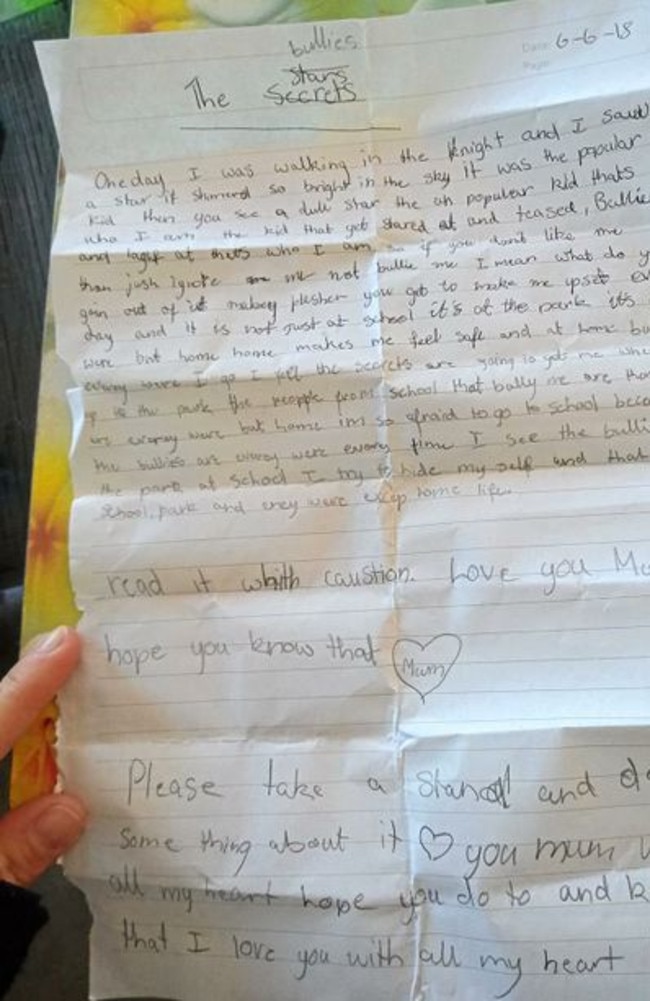 Date: 6-6-18
Page:
bullies
The Stars
Secrets
One day I was walking in the knight and I saw
a star it so bright in the sky it was the popular
kid then you see a dull star the un popular kid thats
who I am the kid that get stared at and teased, Bullie
and at thats who I am so if you don't like me
than just me not bullie me I mean what do y
gain out of it you get to make me upset ev
day and it is not just at school it's at the park it's
were but home home makes me feel safe and at home bu
I go I fell the secrets are going to get me whe
the park the people from school that bully me are tho
are were but home im so afraid to go to school beca
the bullies are were every time I see the bulli
the park at school I try to hide my self and that
school, park and were home life.
read it whith caustion. Love you Mu
hope you know that Mum
Please take a stand and do
some thing about it ♡ you mum w
all my heart hope you do to and k
that I love you with all my heart